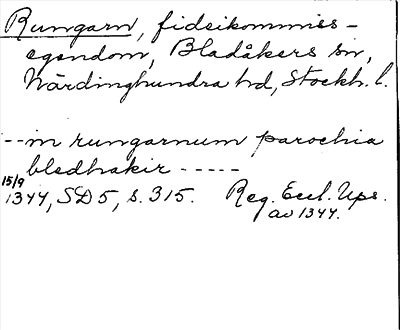 Rungarn, fideikommiss-
egendom, Bladåkers sn,
Närdinghundra hd, Stockh. l.
--in rungarnum parochia
bledhakir -----
15/9
1344, SD 5, s. 315. Reg. Eccl. Ups.
av 1344.